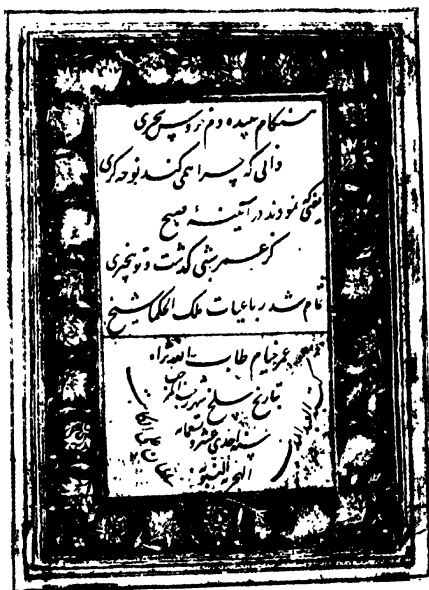 هنگام سپیده دم خروس سحری
دانی که چرا همی کند نوحه گری
یعنی که نمودند در آیینهٔ صبح
کز عمر شبی گذشت و تو بیخبری
تمام شد رباعیات ملک الحکما شیخ
عمر خیام طاب الله ثراه
بتاریخ سلخ شهر رجب المرجب
سنه احدی عشر و تسعمائه
الهجریة النبویة